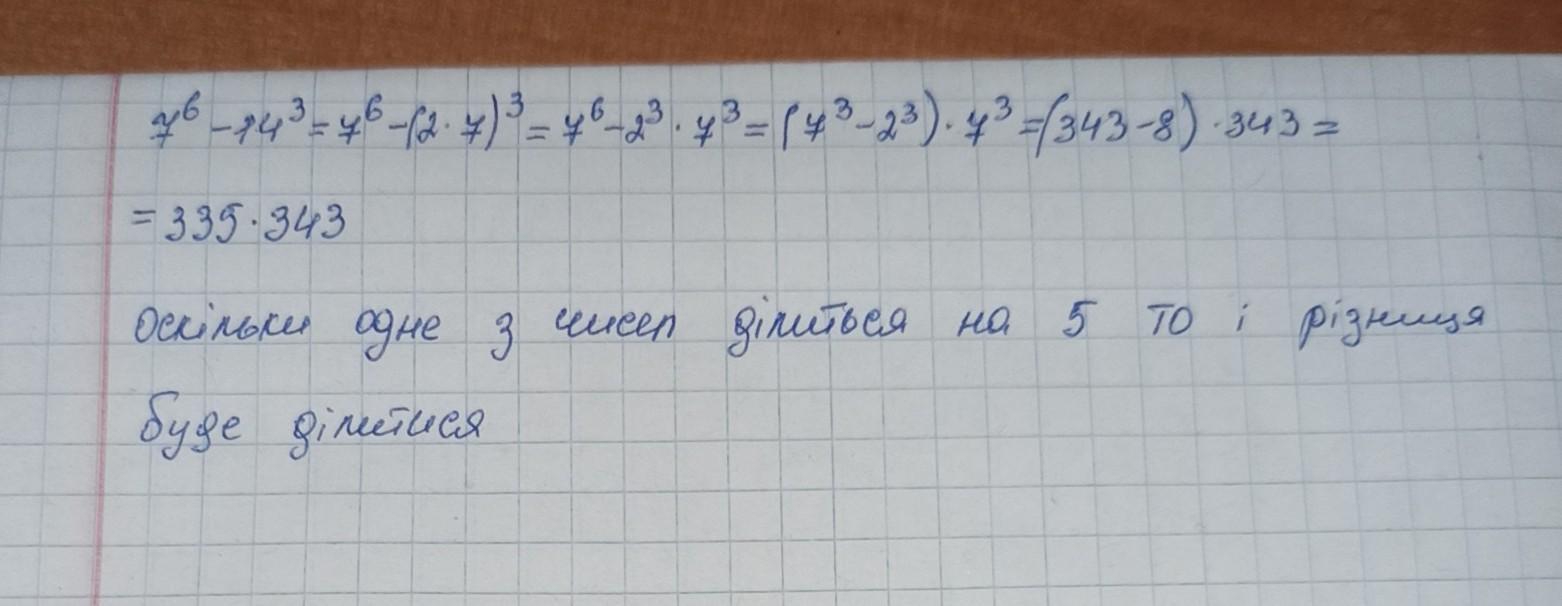 7⁶ - 14³ = 7⁶ - (2 · 7)³ = 7⁶ - 2³ · 7³ = (7³ - 2³) · 7³ = (343 - 8) · 343 =
= 335 · 343
Оскільки одне з чисел ділиться на 5 то і різниця
буде ділитися